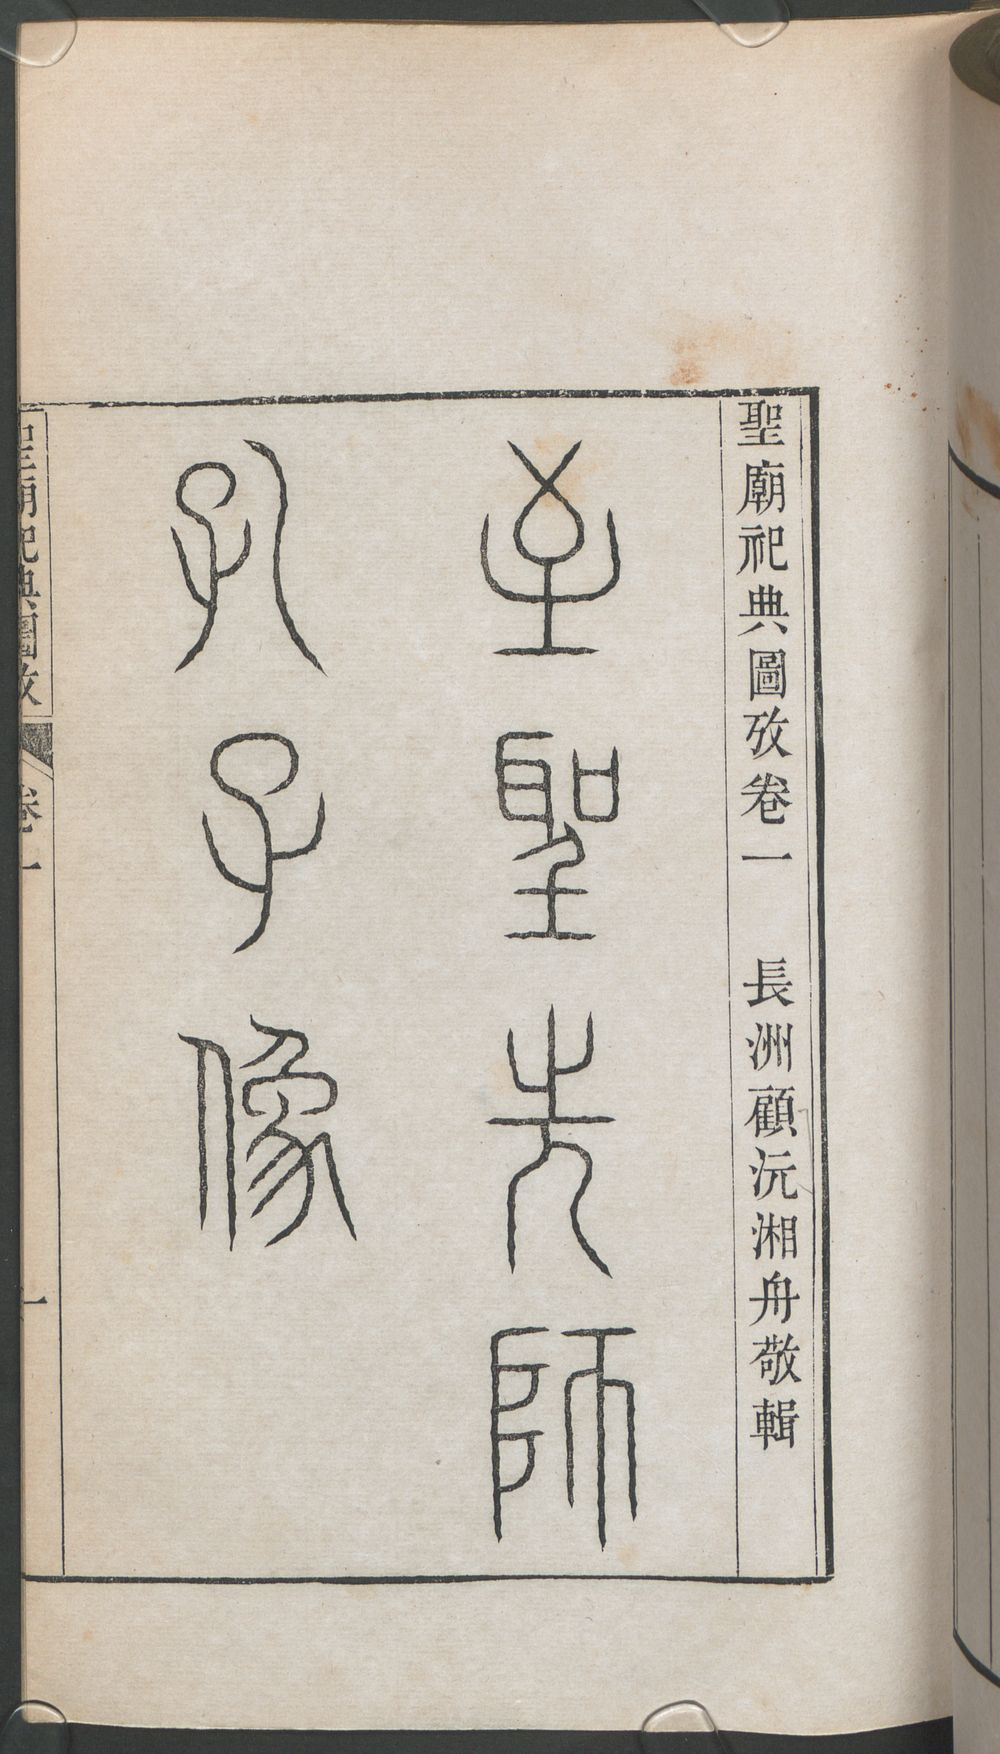 聖廟祀典圖攷卷一　長洲顧沅湘舟敬輯
至聖先師
孔子像
聖廟祀典圖攷
卷一
一